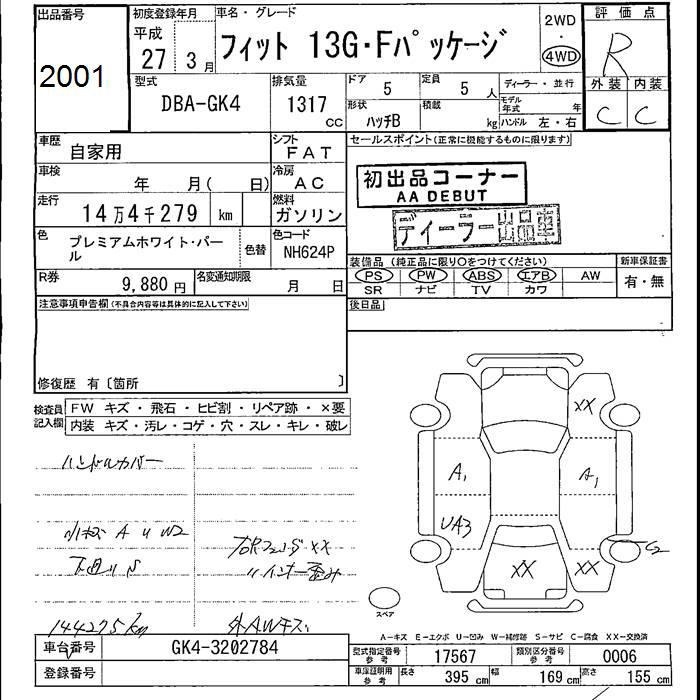 出品番号
2001
初度登録年月
平成
27年 3月
車名・グレード
フィット 13G・Fパッケージ
2WD
・
4WD
評価点
R
外装 内装
C C
型式
DBA-GK4
排気量
1317 CC
ドア
5
定員
5 人
形状
ハッチB
積載
kg
ディーラー・並行
モデル年式 年
ハンドル 左・右
車歴
自家用
シフト
FAT
車検
年 月( 日)
冷房
AC
走行
14万4千279 km
燃料
ガソリン
色
プレミアムホワイト・パール
色替
色コード
NH624P
R券
9,880 円
名変通知期限
月 日
セールスポイント(正常に機能するものに限ります)
初出品コーナー
AA DEBUT
ディーラー出品車
装備品(純正品に限り○をつけてください)
新車保証書
PS PW ABS エアB AW
SR ナビ TV カワ
有・無
注意事項申告欄(不具合内容等は具体的に記入して下さい)
後日品
修復歴 有〔箇所 〕
検査員記入欄
FW キズ・飛石・ヒビ割・リペア跡・×要
内装 キズ・汚レ・コゲ・穴・スレ・キレ・破レ
ハンドルカバー
小キズ A U W2
144275km
外AWキズ
XX
A1 A1
UA3
C2
XX XX
スペア
A-キズ E-エクボ U-凹み W-補修跡 S-サビ C-腐食 XX-交換済
車台番号
GK4-3202784
登録番号
型式指定番号 参考
17567
類別区分番号 参考
0006
車庫証明用 参考
長さ 395 cm
幅 169 cm
高さ 155 cm